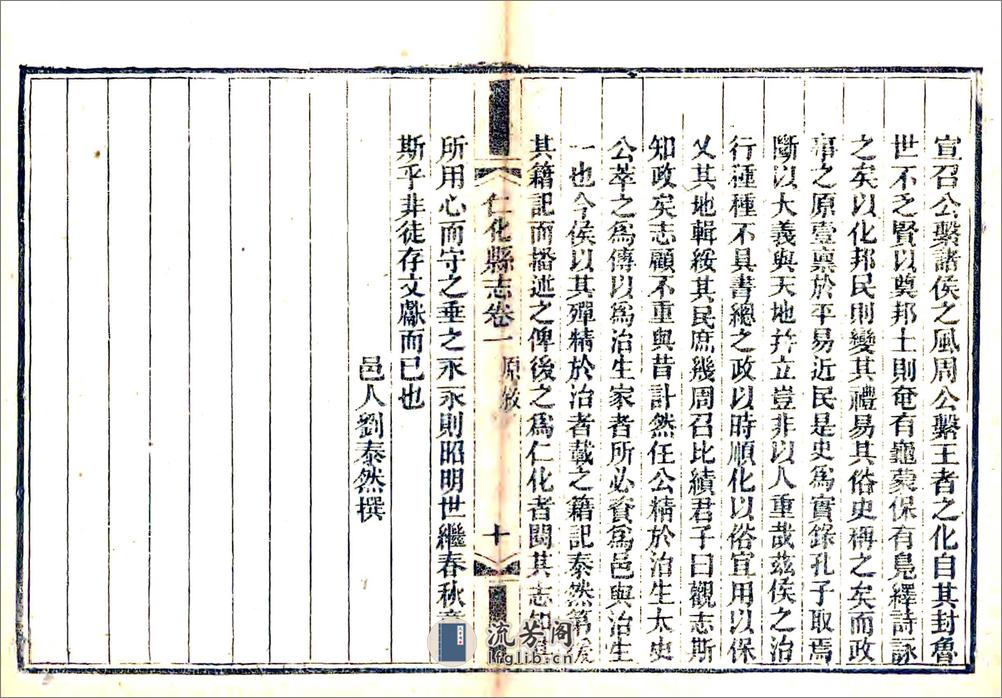 宣召公繫諸侯之風周公繫王者之化自其封魯
世不乏賢以奠邦土則奄有龜蒙保有鳧繹詩詠
之矣以化邦民則變其禮易其俗史稱之矣而政
事之原壹稟於平易近民是史為實錄孔子取焉
斷以大義與天地并立豈非以人重哉茲侯之治
行種種不具書總之政以時順化以俗宜用以保
乂其地輯綏其民庶幾周召比績君子曰觀志斯
知政矣志顧不重與昔計然任公精於治生太史
公萃之為傳以為治生家者所必資為邑與治生
一也今侯以其殫精於治者載之籍記泰然第
其籍記而播述之俾後之為仁化者閱其志知
仁化縣志卷一 原敘 十
所用心而守之垂之永永則昭明世繼春秋
斯乎非徒存文獻而已也
邑人劉泰然撰
流芳閣
glib.cn